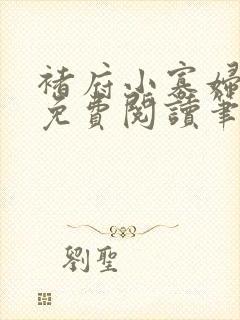 褚府小寡婦
免費閱讀筆
劉聖